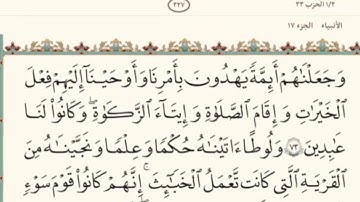 ١/٢ الحزب ٣٣
٣٢٧
الأنبياء الجزء ١٧
وَجَعَلْنَٰهُمْ أَئِمَّةً يَهْدُونَ بِأَمْرِنَا وَأَوْحَيْنَآ إِلَيْهِمْ فِعْلَ
ٱلْخَيْرَٰتِ وَإِقَامَ ٱلصَّلَوٰةِ وَإِيتَآءَ ٱلزَّكَوٰةِ ۖ وَكَانُوا۟ لَنَا
عَٰبِدِينَ ٧٣ وَلُوطًا ءَاتَيْنَٰهُ حُكْمًا وَعِلْمًا وَنَجَّيْنَٰهُ مِنَ
ٱلْقَرْيَةِ ٱلَّتِى كَانَت تَّعْمَلُ ٱلْخَبَٰٓئِثَ ۗ إِنَّهُمْ كَانُوا۟ قَوْمَ سَوْءٍ